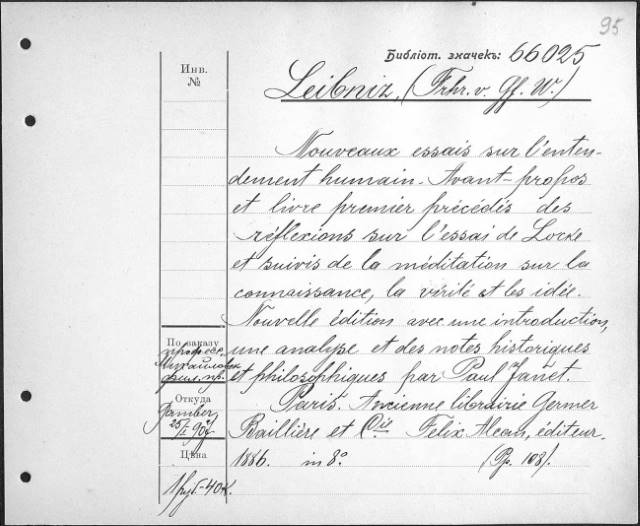 95
Библіот. значекъ: 66025
Инв. №
Leibniz, (Frhr. v. Gf. W.)
Nouveaux essais sur l'enten-
dement humain. Avant-propos
et livre premier précédés des
réflexions sur l'essai de Locke
et suivis de la méditation sur la
connaissance, la vérité et les idée.
Nouvelle édition avec une introduction,
une analyse et des notes historiques
et philosophiques par Paul Janet.
Paris. Ancienne librairie Germer
Baillière et Cie Felix Alcan, éditeur.
1886. in 8°. (Pp. 108).
По заказу
Откуда
25/I 907
Цѣна
1 руб.-40 к.